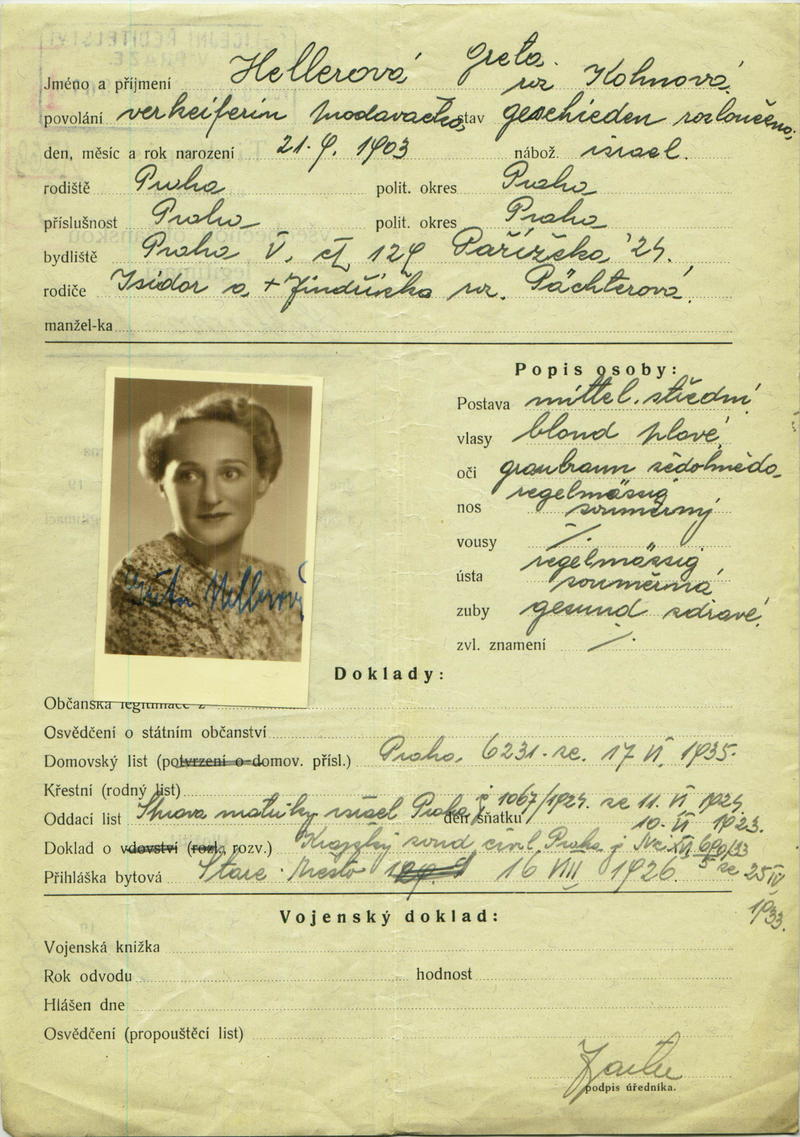 Jméno a příjmení Hellerová Greta
roz. Kohnová
povolání verkeiferin prodavačka stav geschieden rozloučená
den, měsíc a rok narození 21. 9. 1903 nábož. israel.
rodiště Praha polit. okres Praha
příslušnost Praha polit. okres Praha
bydliště Praha V. čp. 129 Pařížská 24.
rodiče Isidor a + Jindřiška roz. Pächterová
manžel-ka
Popis osoby:
Postava mittel. střední
vlasy blond plavé
oči graubraun šedohnědé
nos regelmässig
souměrný
vousy ./.
ústa regelmässig
souměrná
zuby gesund zdravé
zvl. znamení ./.
Greta Hellerová
Doklady:
Občanská legitimace z
Osvědčení o státním občanství
Domovský list (potvrzení o domov. přísl.) Praha, 6231. ze 17 VI. 1935.
Křestní (rodný list)
Oddací list Správa matriky israel Praha j 1067/1924. ze 11. VI 1924.
den sňatku 10. VI 1923.
Doklad o vdovství (rozl. rozv.) Krajský soud civil. Praha
ze 25 IV
1933.
Přihláška bytová Staré Město 16 VIII 1926.
Vojenský doklad:
Vojenská knížka
Rok odvodu hodnost
Hlášen dne
Osvědčení (propouštěcí list)
podpis úředníka.